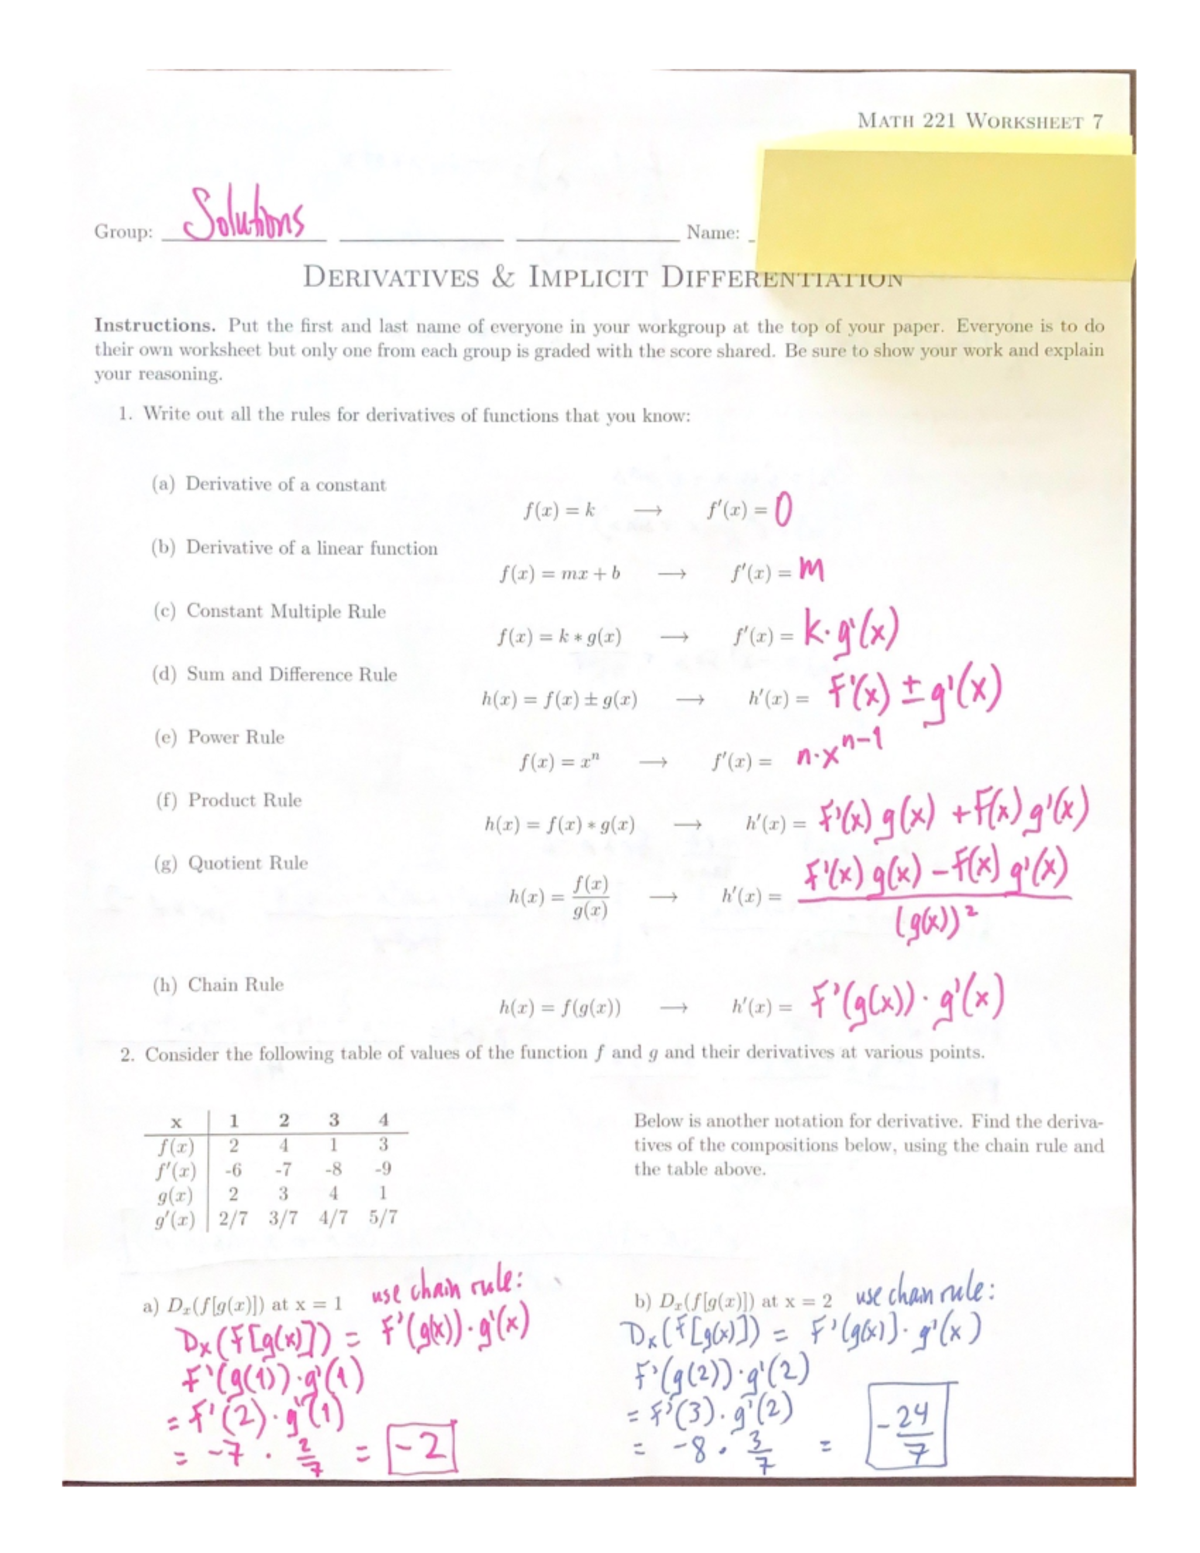 MATH 221 WORKSHEET 7
Group: Solutions Name:
DERIVATIVES & IMPLICIT DIFFERENTIATION
Instructions. Put the first and last name of everyone in your workgroup at the top of your paper. Everyone is to do
their own worksheet but only one from each group is graded with the score shared. Be sure to show your work and explain
your reasoning.
1. Write out all the rules for derivatives of functions that you know:
(a) Derivative of a constant
f(x) = k ⟶ f'(x) = 0
(b) Derivative of a linear function
f(x) = mx + b ⟶ f'(x) = m
(c) Constant Multiple Rule
f(x) = k * g(x) ⟶ f'(x) = k · g'(x)
(d) Sum and Difference Rule
h(x) = f(x) ± g(x) ⟶ h'(x) = f'(x) ± g'(x)
(e) Power Rule
f(x) = xⁿ ⟶ f'(x) = n·x^(n-1)
(f) Product Rule
h(x) = f(x) * g(x) ⟶ h'(x) = f'(x) g(x) + f(x) g'(x)
(g) Quotient Rule
h(x) = f(x)/g(x) ⟶ h'(x) = f'(x) g(x) - f(x) g'(x) / (g(x))²
(h) Chain Rule
h(x) = f(g(x)) ⟶ h'(x) = f'(g(x)) · g'(x)
2. Consider the following table of values of the function f and g and their derivatives at various points.
x 1 2 3 4
f(x) 2 4 1 3
f'(x) -6 -7 -8 -9
g(x) 2 3 4 1
g'(x) 2/7 3/7 4/7 5/7
Below is another notation for derivative. Find the deriva-
tives of the compositions below, using the chain rule and
the table above.
a) Dₓ(f[g(x)]) at x = 1 use chain rule:
Dx(f[g(x)]) = f'(g(x)) · g'(x)
f'(g(1)) · g'(1)
= f'(2) · g'(1)
= -7 · 2/7 = -2
b) Dₓ(f[g(x)]) at x = 2 use chain rule:
Dx(f[g(x)]) = f'(g(x)] · g'(x)
f'(g(2)) · g'(2)
= f'(3) · g'(2)
= -8 · 3/7 = -24/7